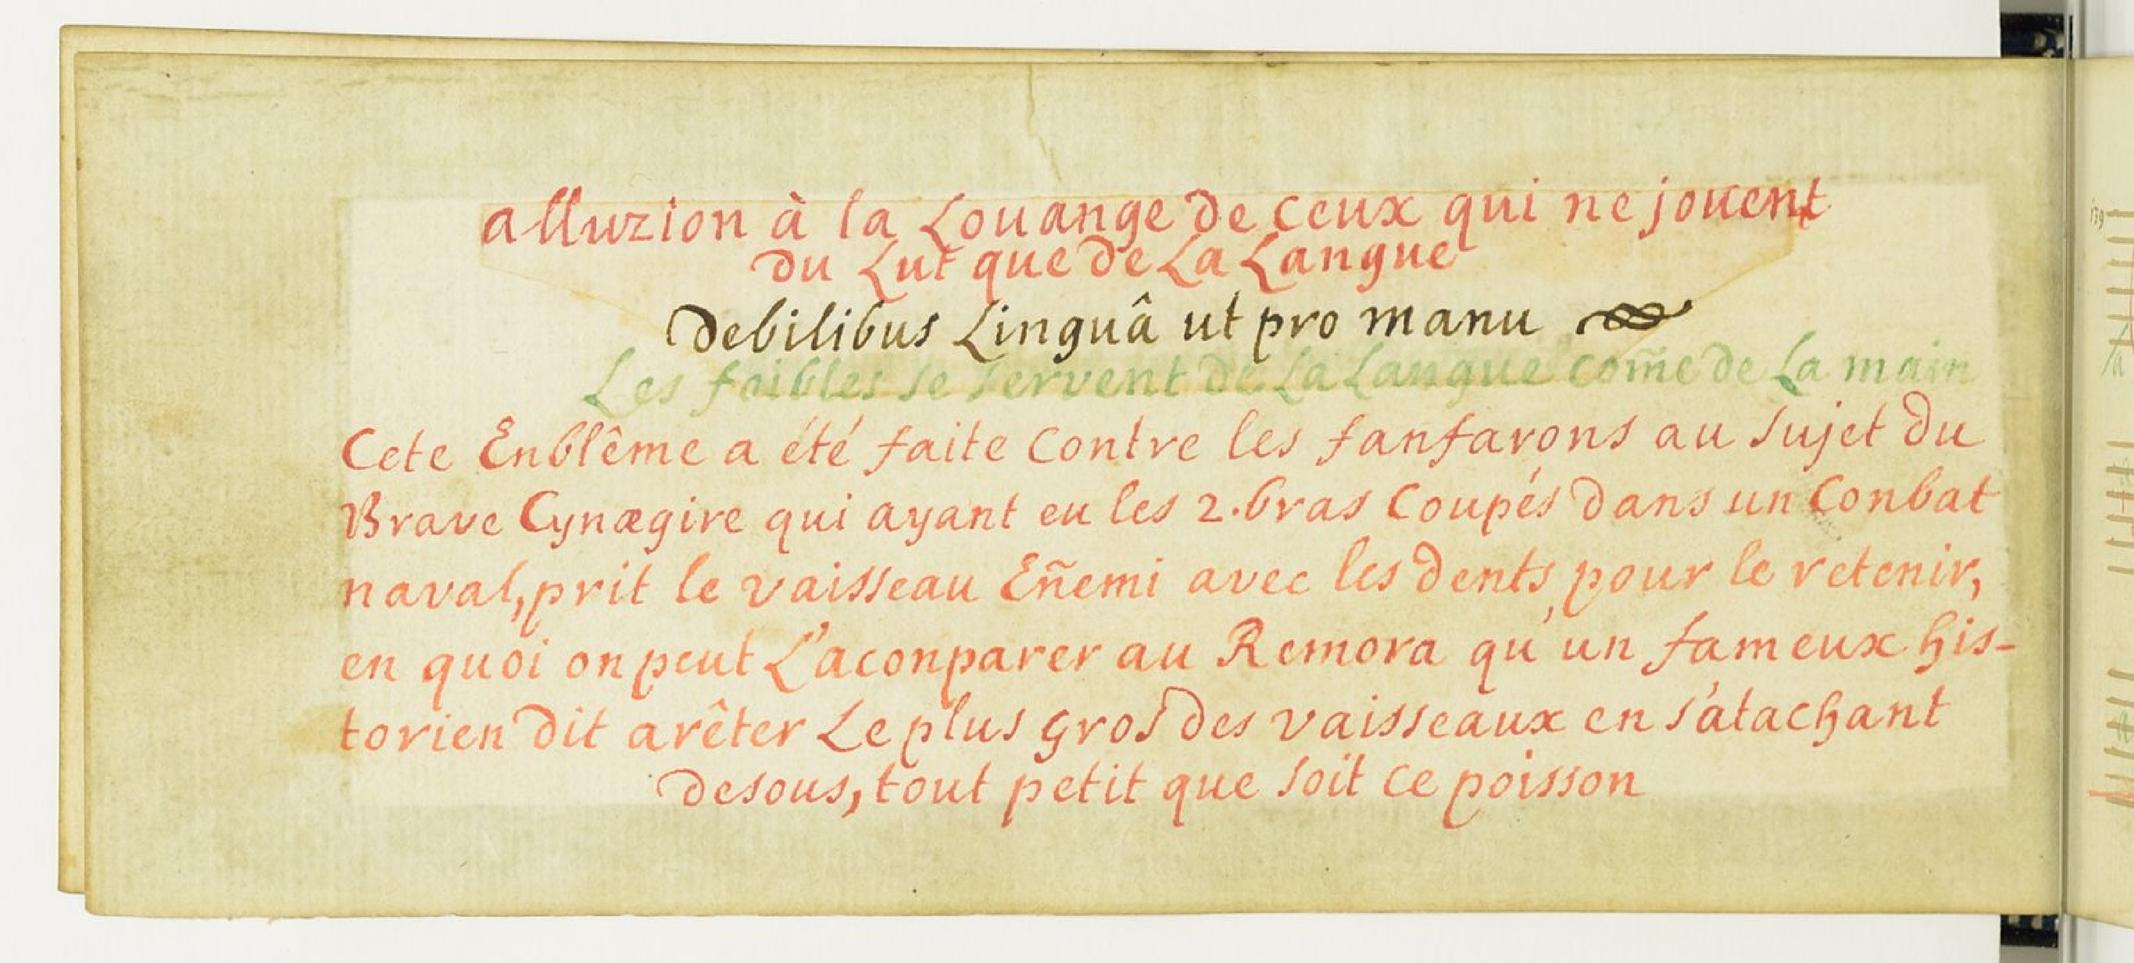 alluzion à la Louange de ceux qui ne jouent
du Lut que de La Langue
Debilibus Linguâ ut pro manu
Les faibles se servent de La Langue com̃e de La main
Cete Enblême a été faite Contre les fanfarons au sujet du
Brave Cynægire qui ayant eu les 2. bras Coupés dans un Conbat
naval, prit le vaisseau Eñemi avec les dents pour le retenir,
en quoi on peut L'aconparer au Remora qu'un fameux his-
torien dit arêter Le plus gros des vaisseaux en s'atachant
desous, tout petit que soit ce poisson